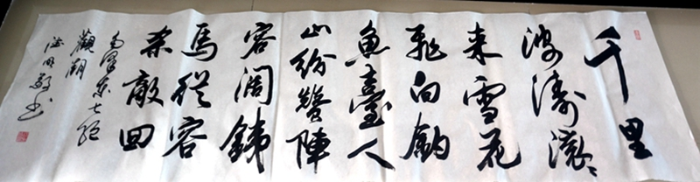 千里
波濤滚々
来雪花
飛向釣
魚臺人
山紛贊陣
容闊銕
馬從容
杀敵回
毛澤東七絕
觀潮
书